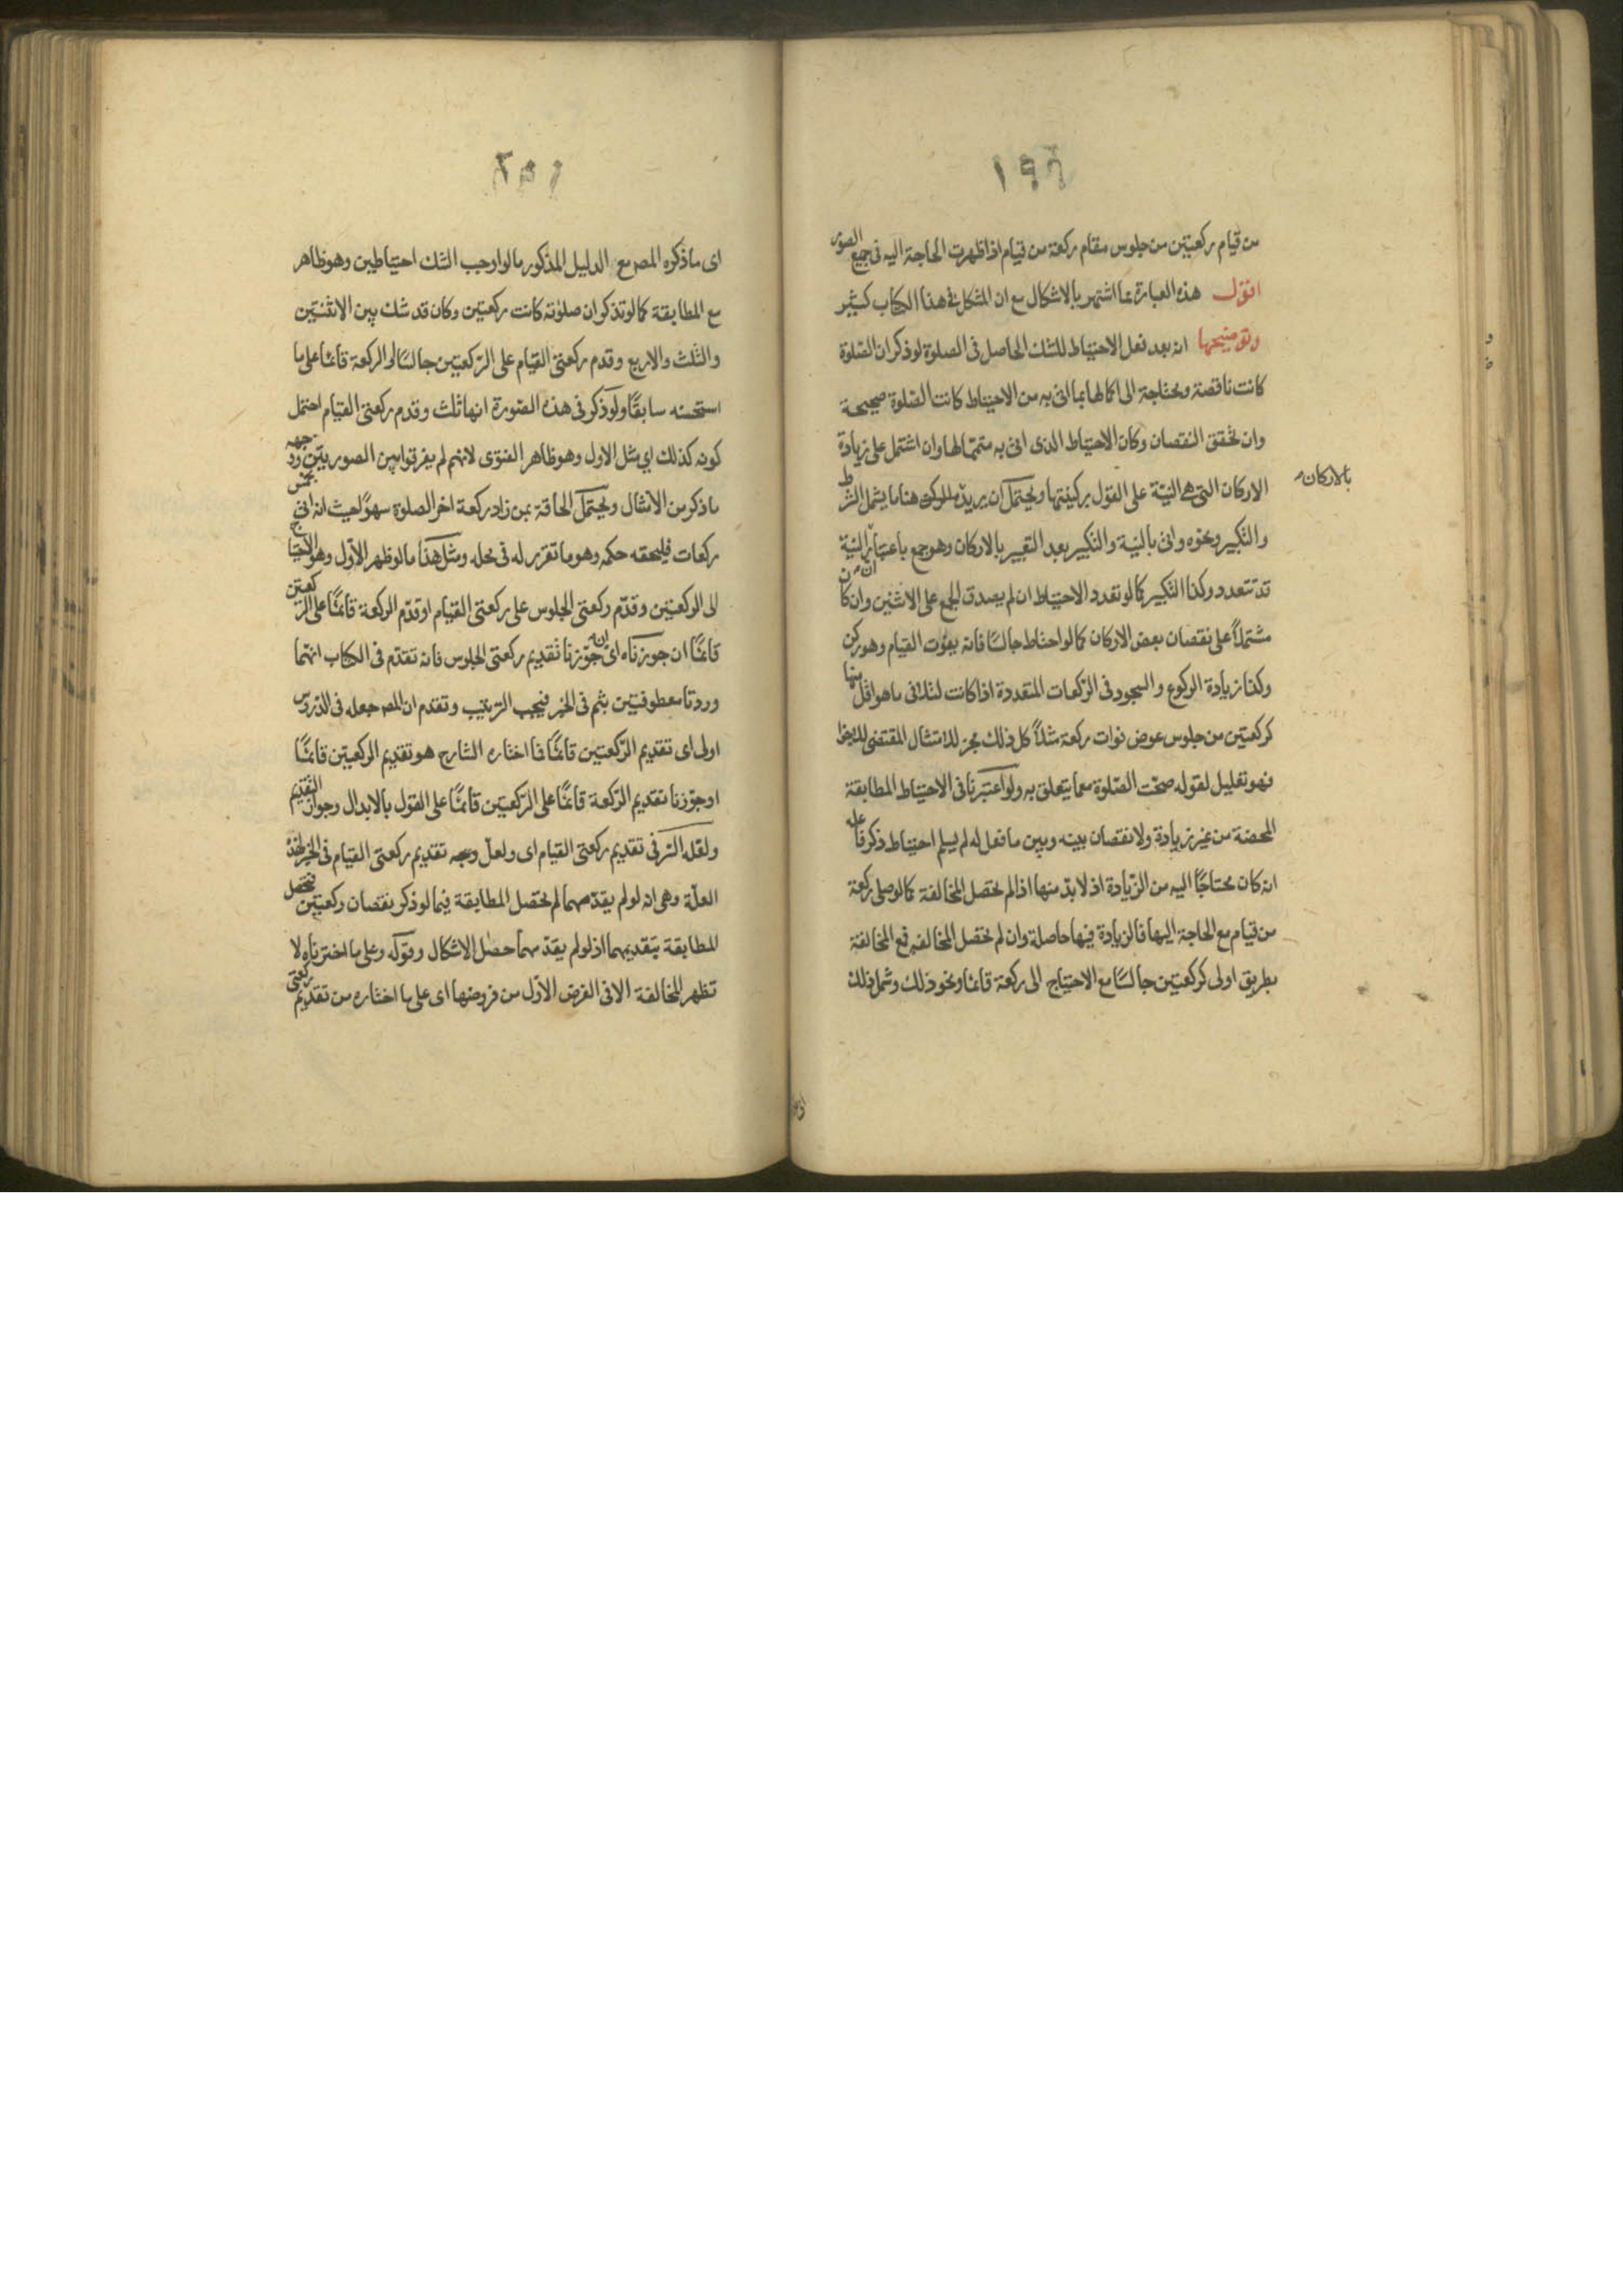 ١٩٦
من قيام ركعتين من جلوس مقام ركعة من قيام اذا ظهرت الحاجة اليه فى جميع الصور
اقول هذه العبارة مما اشتهر بالاشكال مع ان المشكل فى هذا الكتاب كثير
وتوضيحها انه بعد فعل الاحتياط للشك الحاصل فى الصلوة لو ذكر ان الصلوة
كانت ناقصة ومحتاجة الى اكمالها بما اتى به من الاحتياط كانت الصلوة صحيحة
وان تحقق النقصان وكان الاحتياط الذى اتى به متمما لها وان اشتمل على زيادة
الاركان التى هى النية على القول بركنيتها ويحتمل ان يريد بالاركان هنا ما يشمل الشرط
بالاركان
والتكبير ونحوه واتى بالنية والتكبير بعد التعبير بالاركان وهو جمع باعتبار ان النية
قد تتعدد وكذا التكبير كما لو تعدد الاحتياط ان لم يصدق الجمع على الاثنين وان كان
مشتملاً على نقصان بعض الاركان كما لو احتاط جالسًا فانه يفوت القيام وهو ركن
وكذا زيادة الركوع والسجود فى الركعات المتعددة اذا كانت لتلافى ما هو اقل منها
كركعتين من جلوس عوض فوات ركعة مثلاً كل ذلك مجز للامتثال المقتضى للاجزا
فهو تعليل لقوله صحت الصلوة معما يتعلق به ولو اعتبرنا فى الاحتياط المطابقة
المحضة من غير زيادة ولا نقصان بينه وبين ما فعل له لم يسلم احتياط ذكر فاعله
انه كان محتاجًا اليه من الزيادة اذ لا بد منها اذا لم تحصل المخالفة كما لو صلى ركعة
من قيام مع الحاجة اليها فالزيادة فيها حاصلة وان لم تحصل المخالفة فمع المخالفة
بطريق اولى كركعتين جالسًا مع الاحتياج الى ركعة قائما ونحو ذلك وشمل ذلك
اى ما ذكره المص مع الدليل المذكور ما لو اوجب الشك احتياطين وهو ظاهر
مع المطابقة كما لو تذكر ان صلوته كانت ركعتين وكان قد شك بين الاثنتين
والثلث والاربع وقدم ركعتى القيام على الركعتين جالسًا او الركعة قائما على ما
استحسنه سابقًا ولو ذكر فى هذه الصورة انها ثلث وقدم ركعتى القيام احتمل
كونه كذلك اى مثل الاول وهو ظاهر الفتوى لانهم لم يفرقوا بين الصورتين ووجهه
ما ذكر من الامتثال ويحتمل الحاقه بمن زاد ركعة اخر الصلوة سهوًا بحيث انه اتى بخمس
ركعات فيلحقه حكمه وهو ما تقرر له فى محله ومثل هذا ما لو ظهر الاول وهو الاحتياج
الى الركعتين وقدم ركعتى الجلوس على ركعتى القيام او قدم الركعة قائمًا على الركعتين
قائمًا ان جوزناه اى ان جوزنا تقديم ركعتى الجلوس فانه تقدم فى الكتاب انهما
وردتا معطوفتين بثم فى الخبر فيجب الترتيب وتقدم ان المص جعله فى الدروس
اولى اى تقديم الركعتين قائمًا فما اختاره الشارح هو تقديم الركعتين قائمًا
او جوزنا تقديم الركعة قائمًا على الركعتين قائمًا على القول بالابدال وجواز التقديم
ولعله السر فى تقديم ركعتى القيام اى ولعل وجه تقديم ركعتى القيام فى الخبر لهذه
العلة وهى انه لو لم يقدمهما لم تحصل المطابقة فيما لو ذكر نقصان ركعتين فتحصل
المطابقة بتقديمهما اذ لو لم يقدمهما حصل الاشكال وقوله وعلى ما اخترناه لا
تظهر المخالفة الا فى الفرض الاول من فروضها اى على ما اختاره من تقديم ركعتى